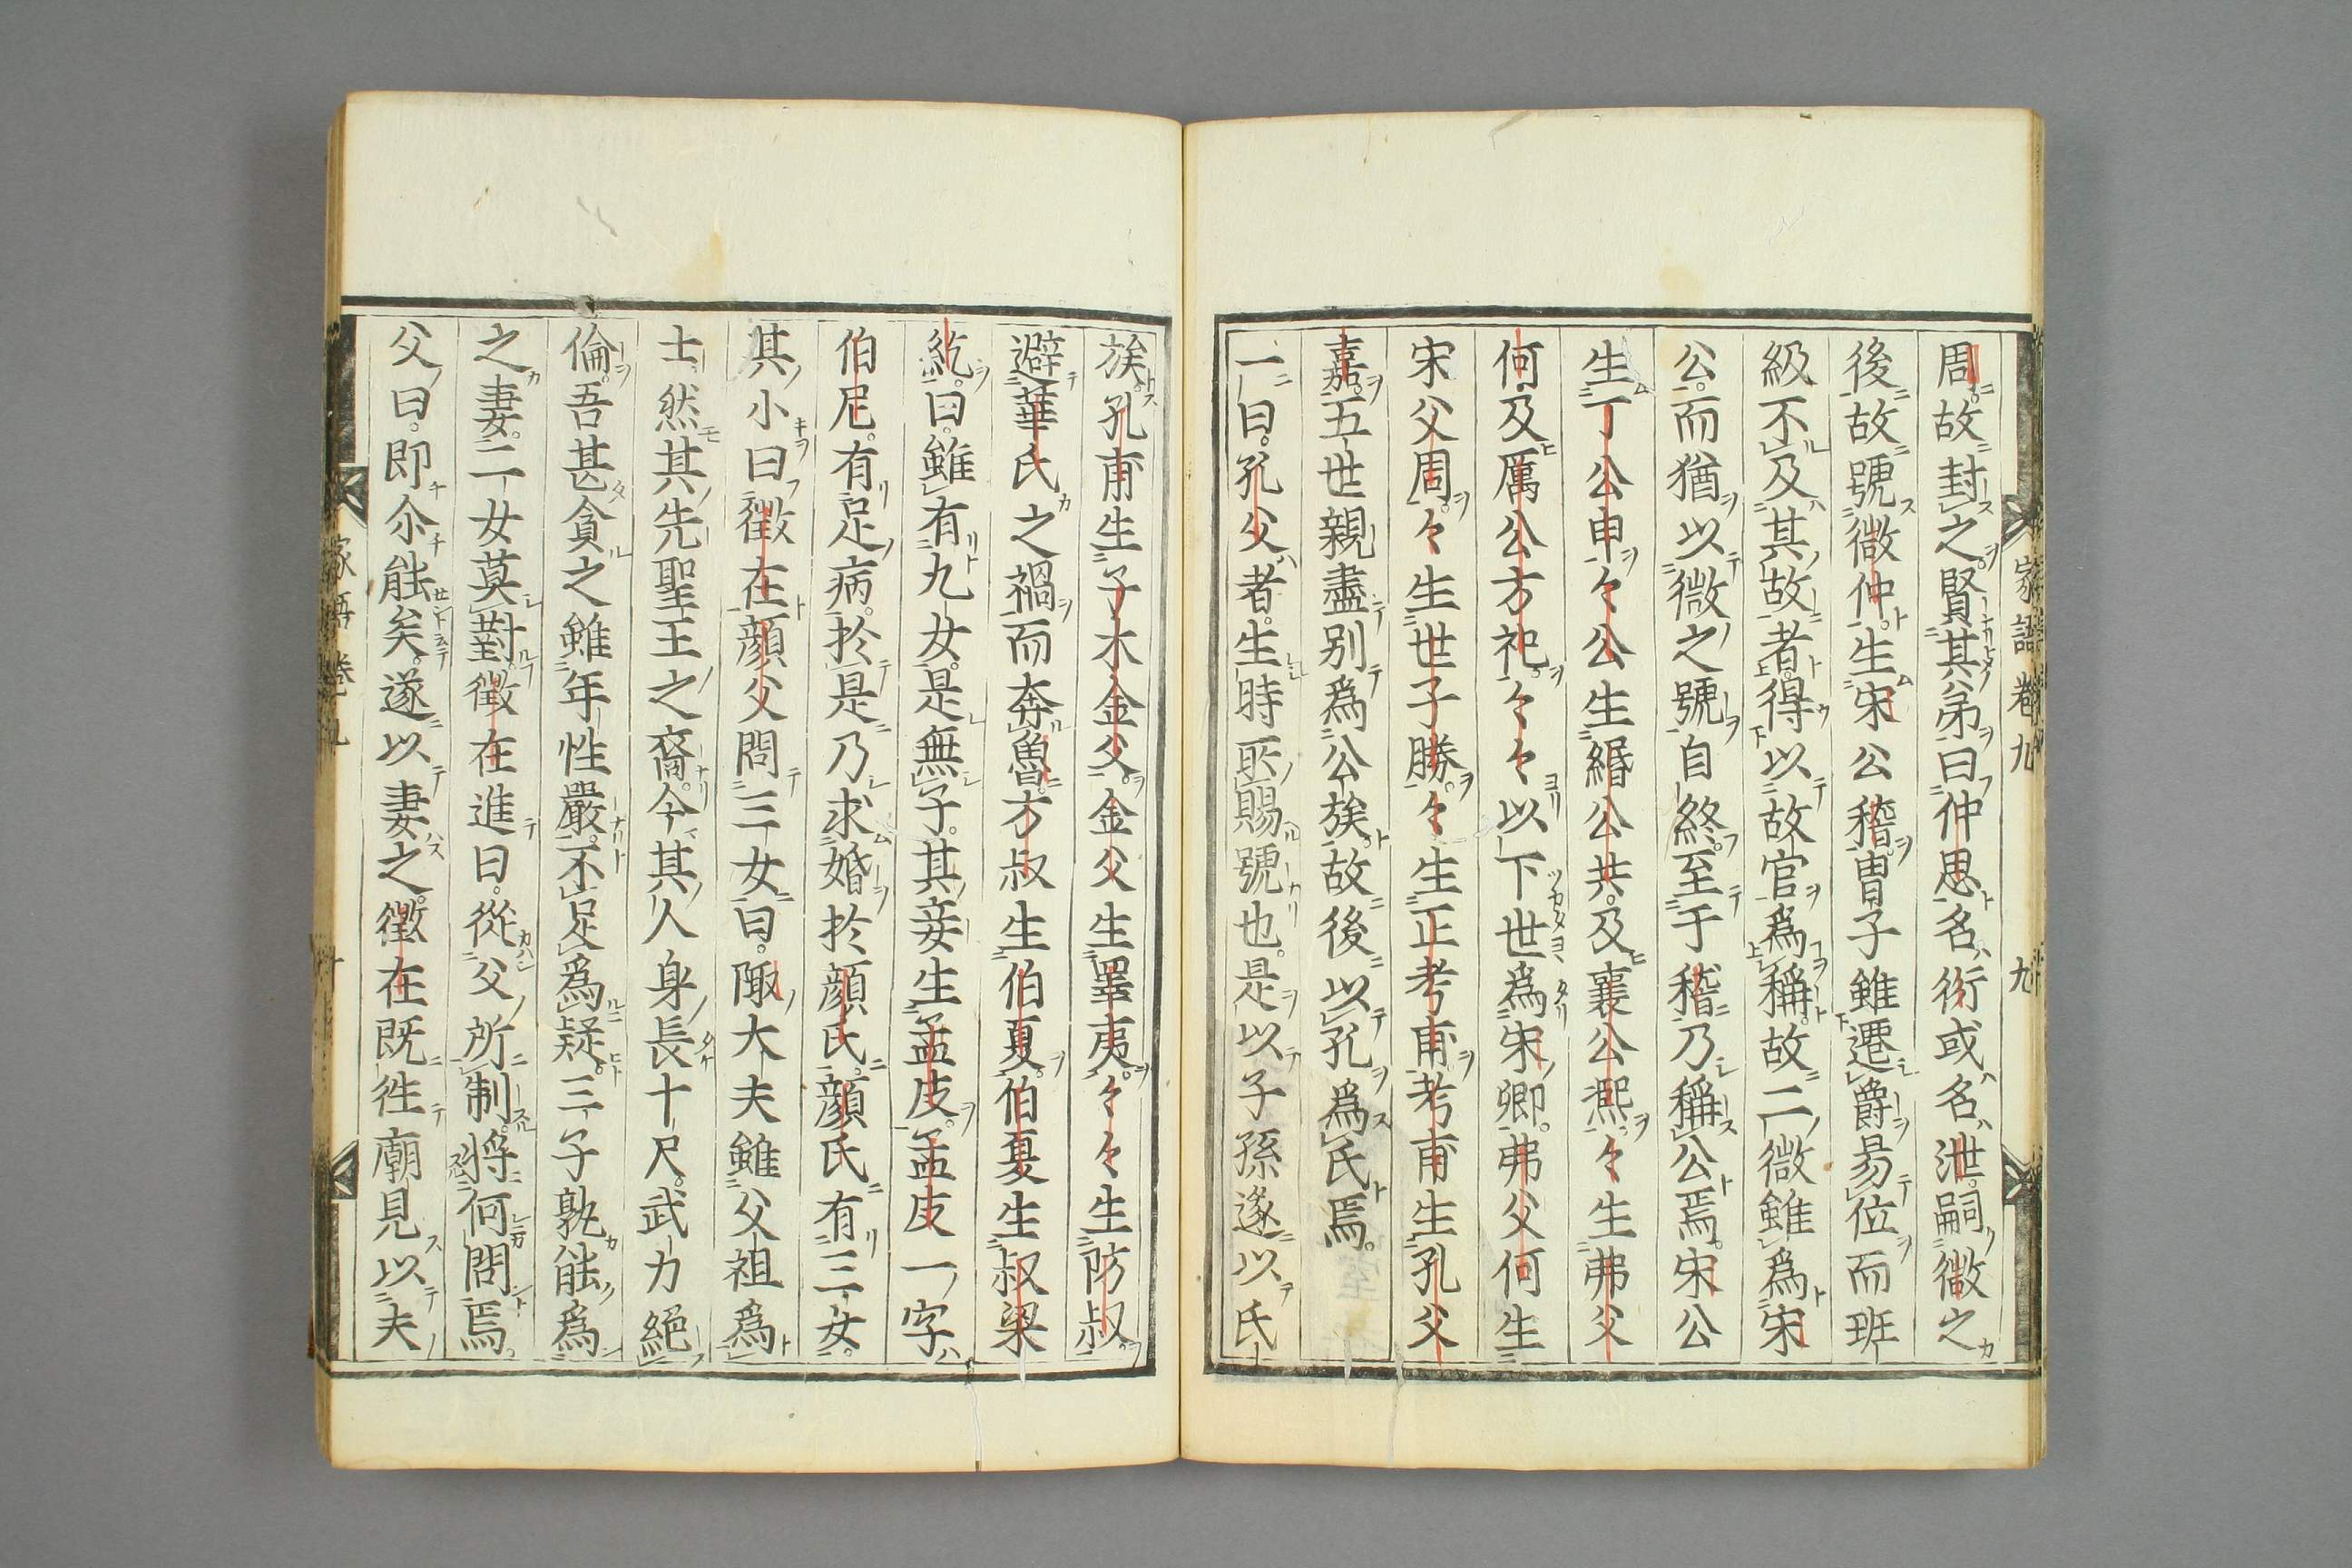 家語卷九 九
周故封之賢其弟曰仲思名衍或名泄嗣微之
後故號微仲生宋公稽冑子雖遷爵易位而班
級不及其故者得以故官爲稱故二微雖爲宋
公而猶以微之號自終至于稽乃稱公焉宋公
生丁公申々公生緡公共及襄公熙々生弗父
何及厲公方祀々々以下世爲宋卿弗父何生
宋父周々生世子勝々生正考甫考甫生孔父
嘉五世親盡别爲公族故後以孔爲氏焉
一曰孔父者生時所賜號也是以子孫遂以氏
族孔甫生子木金父金父生睪夷々々生防叔
避華氏之禍而奔魯方叔生伯夏伯夏生叔梁
紇曰雖有九女是無子其妾生孟皮孟皮一字
伯尼有足病於是乃求婚於顔氏顔氏有三女
其小曰徵在顔父問三女曰陬大夫雖父祖爲
士然其先聖王之裔今其人身長十尺武力絕
倫吾甚貪之雖年性嚴不足爲疑三子孰能爲
之妻二女莫對徵在進曰從父所制將何問焉
父曰即尒能矣遂以妻之徵在既徃廟見以夫
家語卷九 十